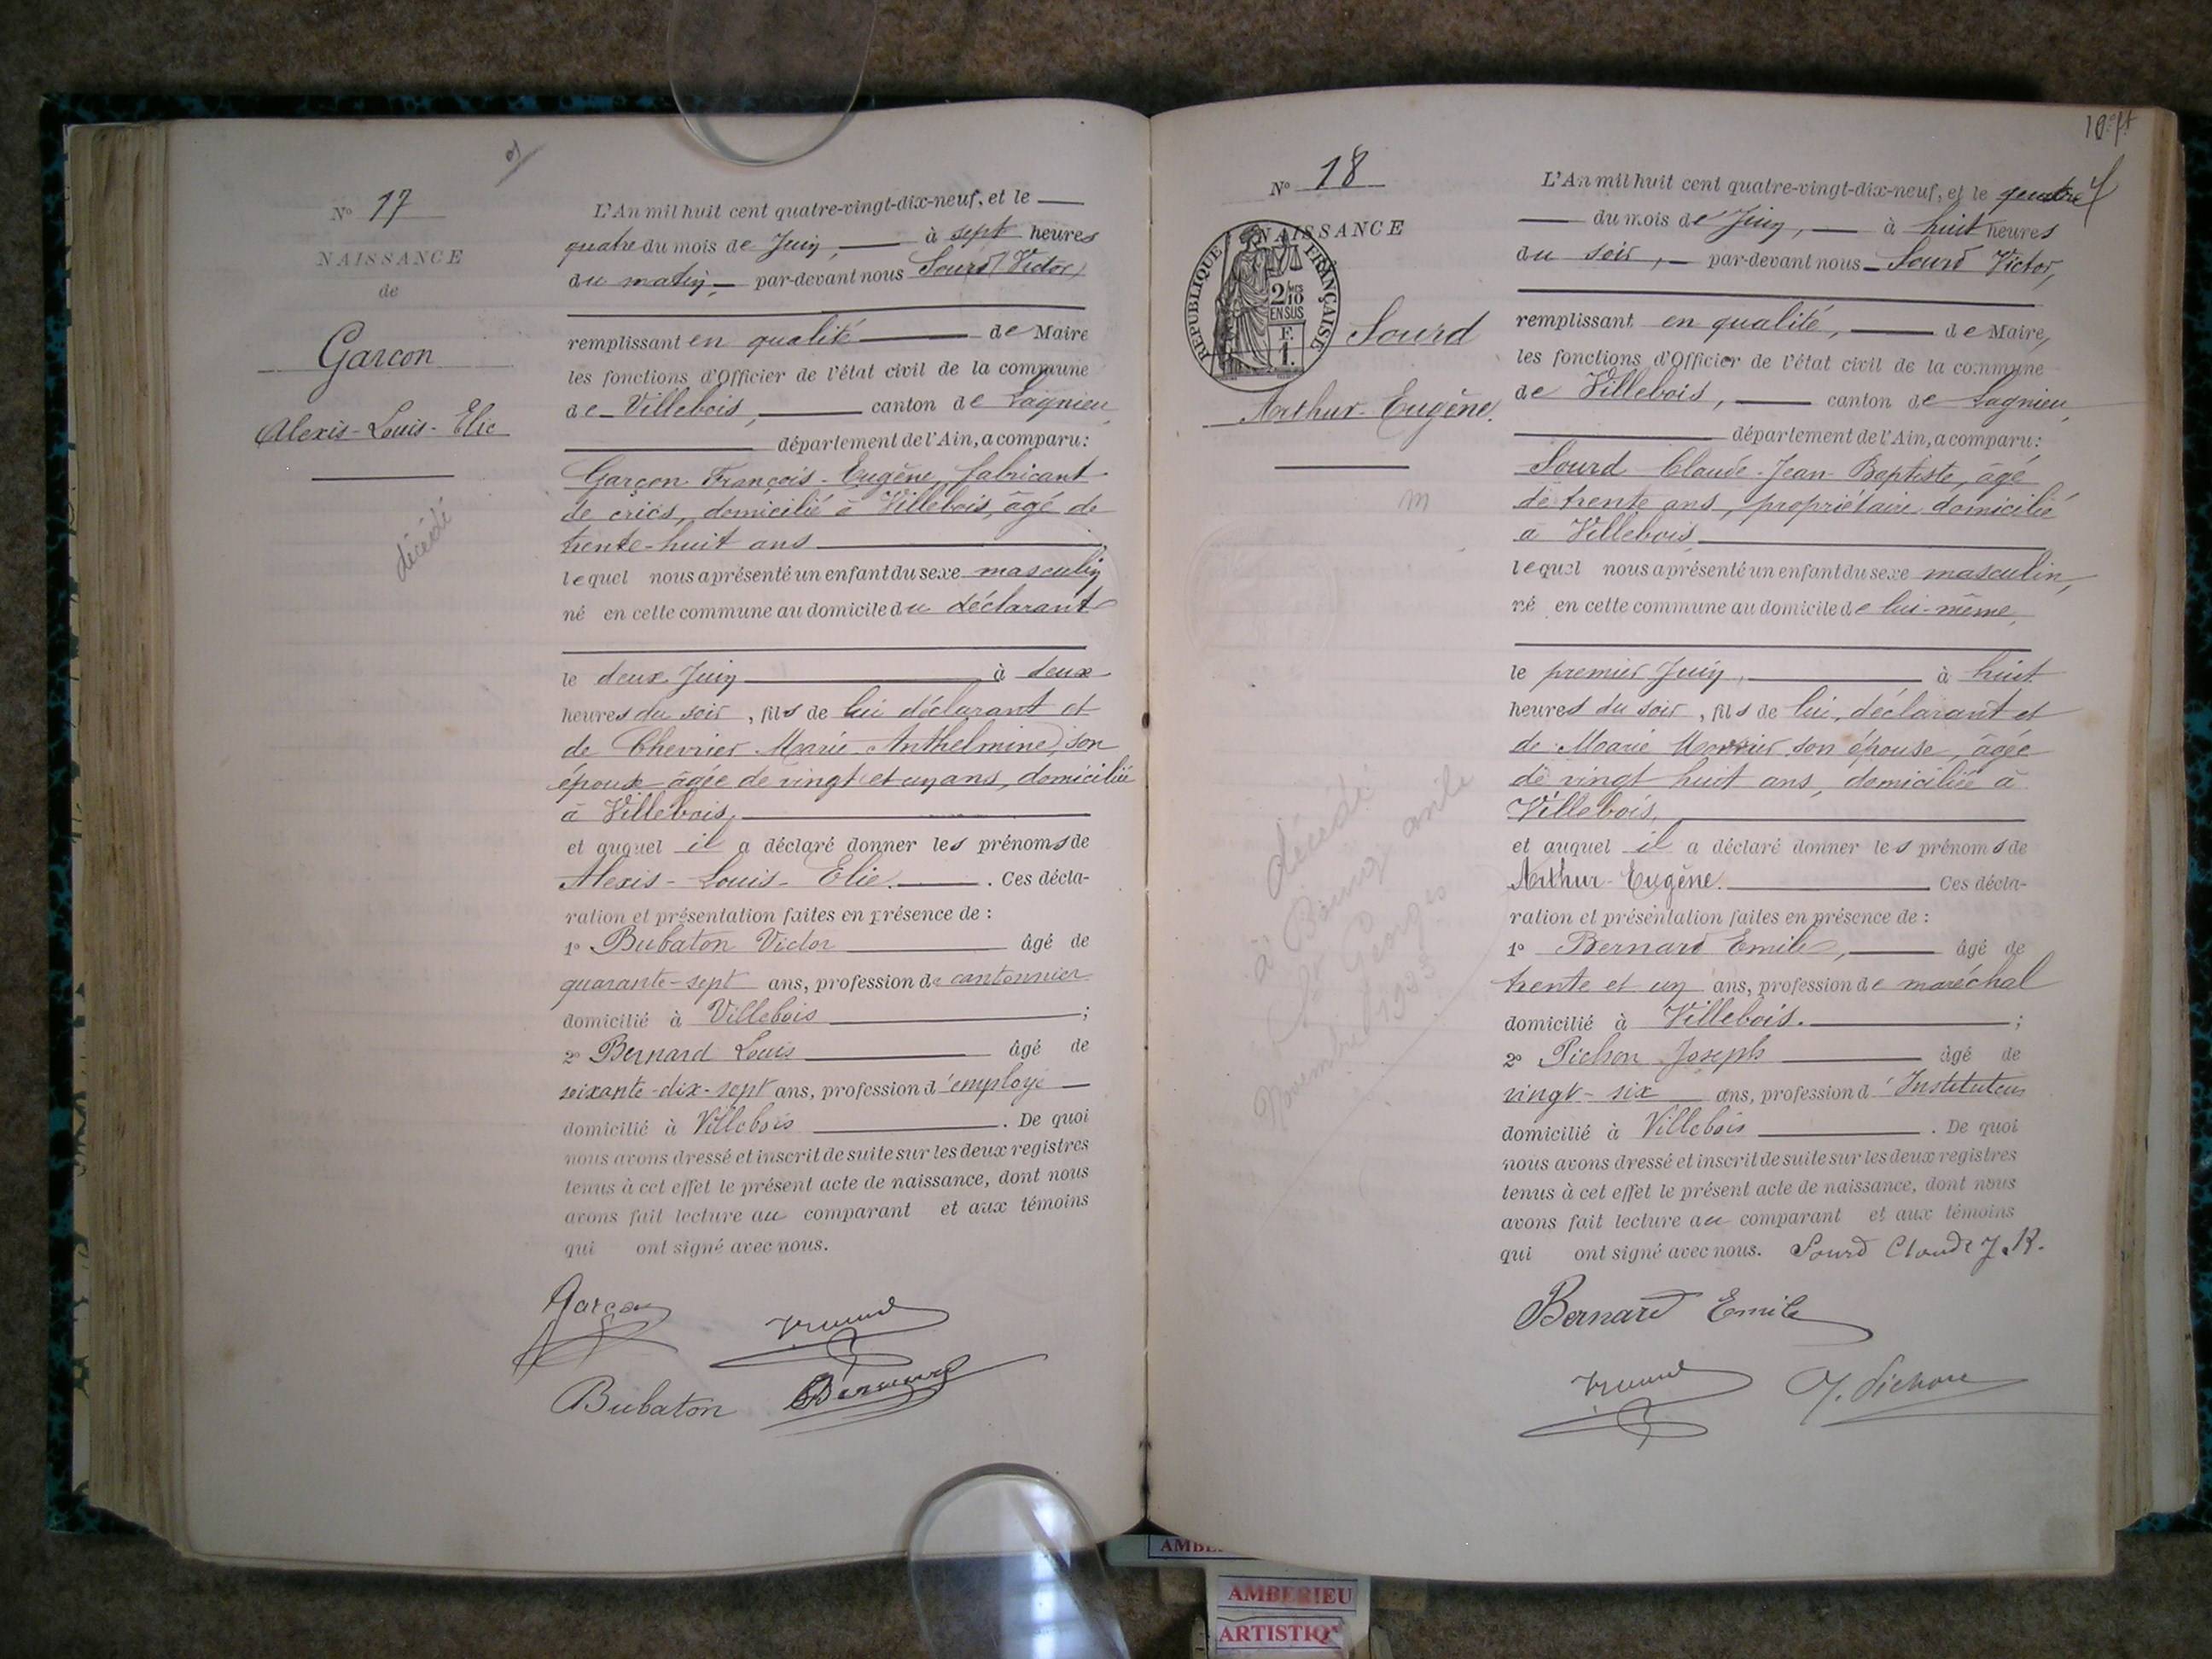 Nº 17
NAISSANCE
de
Garcon
Alexis-Louis-Elie
décédé
L'An mil huit cent quatre-vingt-dix-neuf, et le
quatre du mois de Juin, à sept heures
du matin, par-devant nous Sourd (Victor)
remplissant en qualité de Maire
les fonctions d'Officier de l'état civil de la commune
de Villebois, canton de Lagnieu,
département de l'Ain, a comparu:
Garçon François-Eugène, fabricant
de crics, domicilié à Villebois, âgé de
trente-huit ans
lequel nous a présenté un enfant du sexe masculin
né en cette commune au domicile du déclarant
le deux Juin à deux
heures du soir, fils de lui déclarant et
de Chevrier Marie-Anthelmine, son
épouse âgée de vingt et un ans, domiciliée
à Villebois,
et auquel il a déclaré donner les prénoms de
Alexis-Louis-Elie. Ces décla-
ration et présentation faites en présence de :
1º Bubaton Victor âgé de
quarante-sept ans, profession de cantonnier
domicilié à Villebois ;
2º Bernard Louis âgé de
soixante-dix-sept ans, profession d'employé
domicilié à Villebois . De quoi
nous avons dressé et inscrit de suite sur les deux registres
tenus à cet effet le présent acte de naissance, dont nous
avons fait lecture au comparant et aux témoins
qui ont signé avec nous.
Garçon
Bubaton Bernard
Nº 18
NAISSANCE
RÉPUBLIQUE FRANÇAISE
2/10
EN SUS
F.
1.
Sourd
Arthur-Eugène.
m
décédé
à Bourg asile
St Georges
Novembre 1933
L'An mil huit cent quatre-vingt-dix-neuf, et le quatre
du mois de Juin, à huit heures
du soir, par-devant nous Sourd Victor,
remplissant en qualité, de Maire,
les fonctions d'Officier de l'état civil de la commune
de Villebois, canton de Lagnieu,
département de l'Ain, a comparu:
Sourd Claude-Jean-Baptiste, âgé
de trente ans, propriétaire domicilié
à Villebois
lequel nous a présenté un enfant du sexe masculin,
né en cette commune au domicile de lui-même,
le premier Juin, à huit
heures du soir, fils de lui, déclarant et
de Marie son épouse, âgée
de vingt huit ans, domiciliée à
Villebois,
et auquel il a déclaré donner les prénoms de
Arthur-Eugène. Ces décla-
ration et présentation faites en présence de :
1º Bernard Emile, âgé de
trente et un ans, profession de maréchal
domicilié à Villebois. ;
2º Pichon Joseph âgé de
vingt-six ans, profession d'Instituteur
domicilié à Villebois . De quoi
nous avons dressé et inscrit de suite sur les deux registres
tenus à cet effet le présent acte de naissance, dont nous
avons fait lecture au comparant et aux témoins
qui ont signé avec nous. Sourd Claude J. B.
Bernard Emile
J. Pichon
AMBERIEU
ARTISTIQ